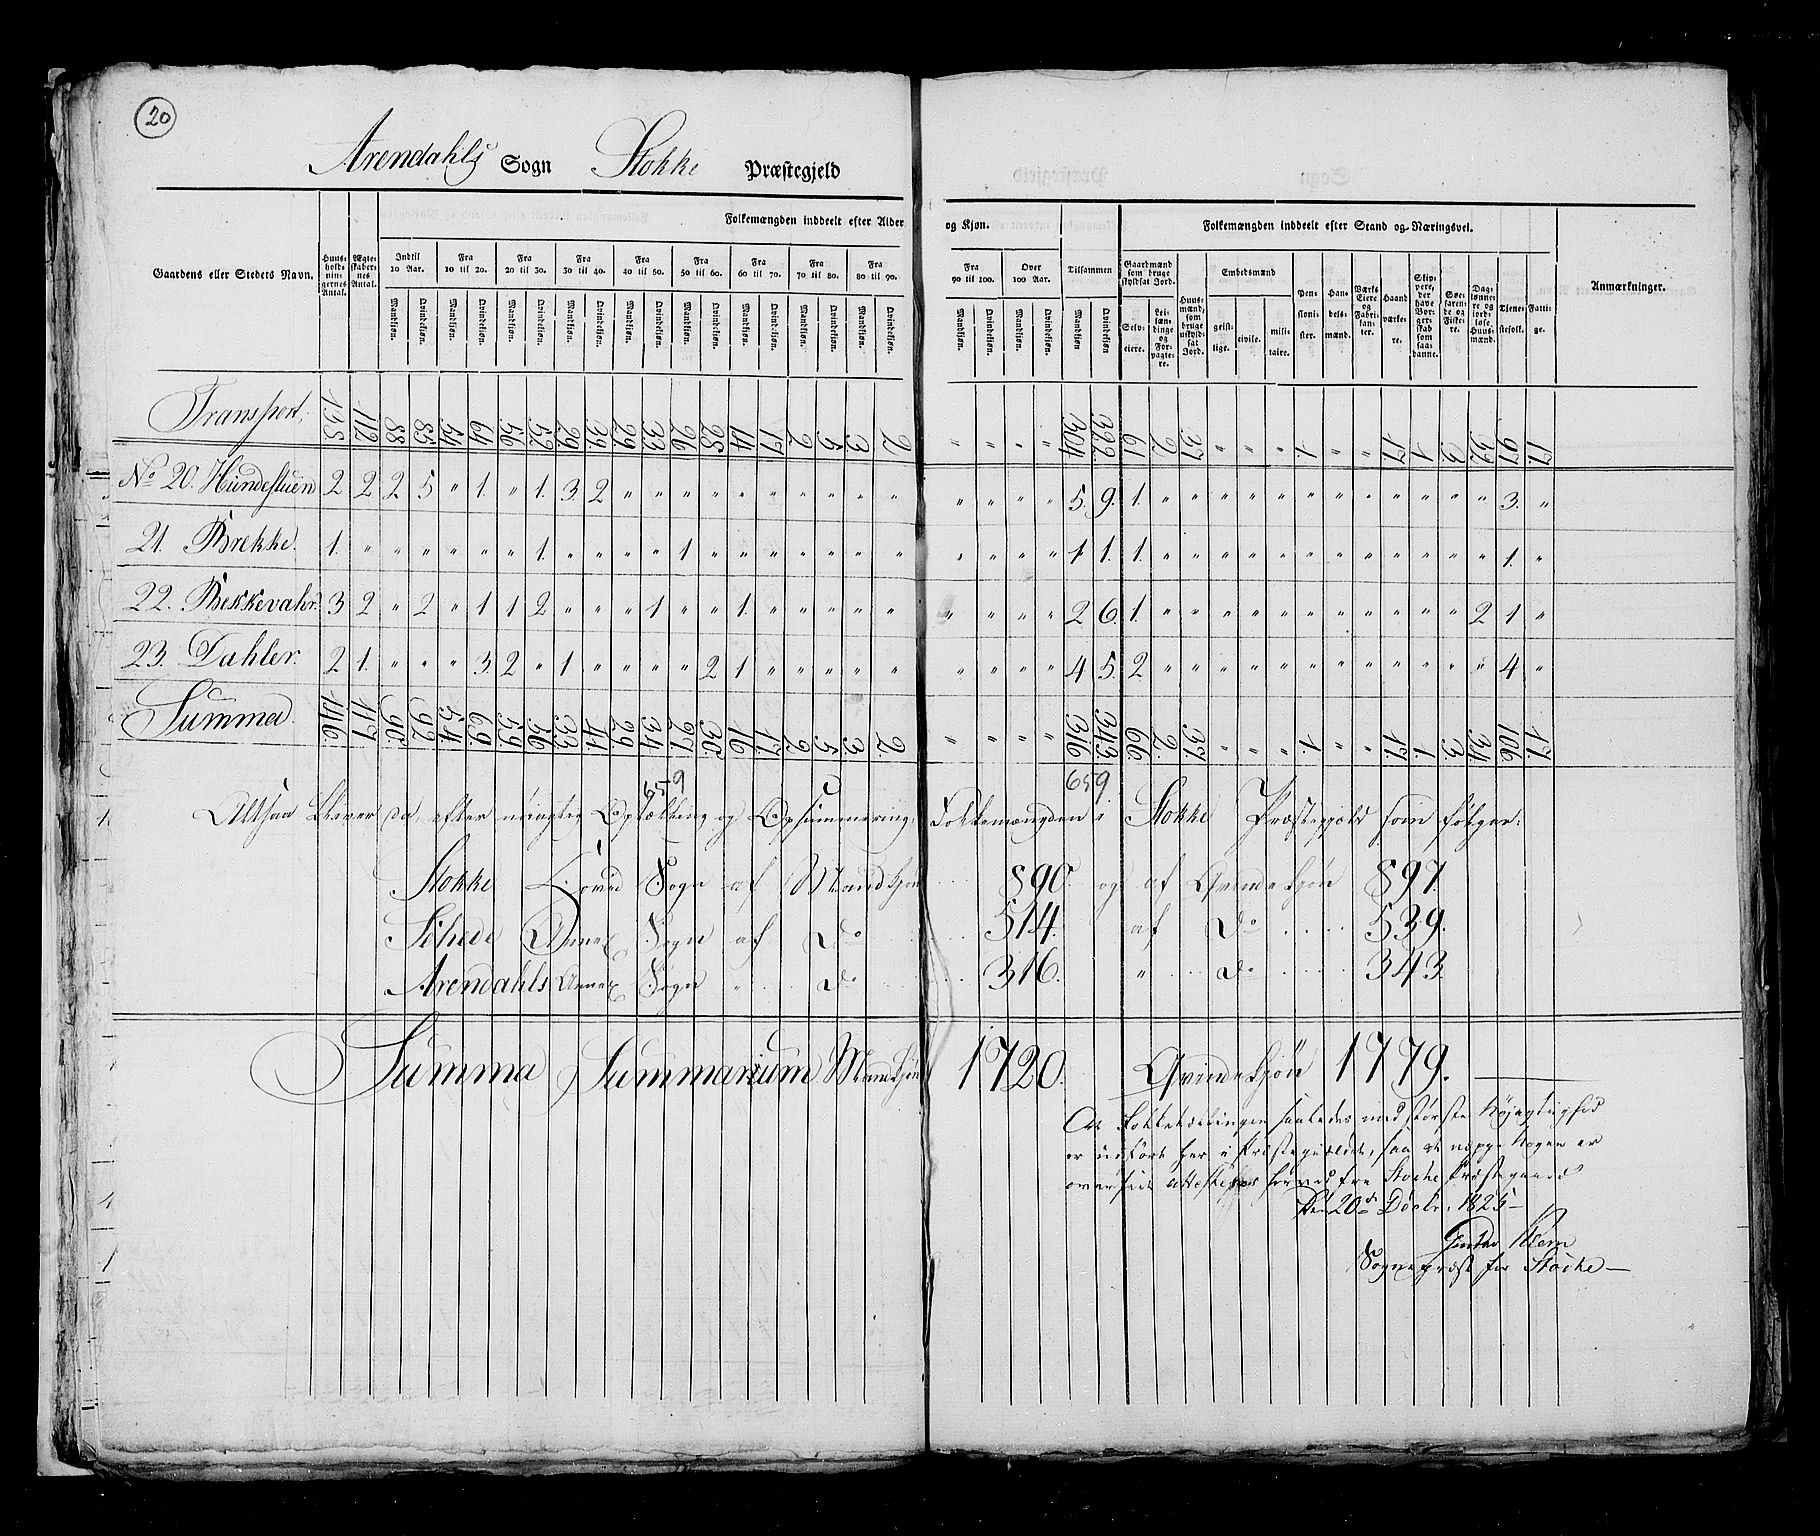 20
Arendahls Sogn Stokke Præstegjeld
Folkemængden inddeelt efter Alder og Kjøn. Folkemængden inddeelt efter Stand og Næringsvei.
Gaardens eller Stedets Navn. Huusholdningernes Antal. Ægteskabernes Antal. Indtil 10 Aar. Fra 10 til 20. Fra 20 til 30. Fra 30 til 40. Fra 40 til 50. Fra 50 til 60. Fra 60 til 70. Fra 70 til 80. Fra 80 til 90. Fra 90 til 100. Over 100 Aar. Tilsammen Gaardmænd som bruge skyldsat Jord. Huusmænd, som bruge uskyldsat Jord. Embedsmænd Pensionister. Handelsmænd. Værks Eiere og Fabrikanter. Haandværkere. Skippere, der have Borgerskab som saadanne. Søefarende og Fiskere. Daglønnere og jordløse Huusmænd. Tjenestefolk. Fattige. Anmærkninger.
Mandkjøn. Qvindekjøn. Mandkjøn. Qvindekjøn. Mandkjøn. Qvindekjøn. Mandkjøn. Qvindekjøn. Mandkjøn. Qvindekjøn. Mandkjøn. Qvindekjøn. Mandkjøn. Qvindekjøn. Mandkjøn. Qvindekjøn. Mandkjøn. Qvindekjøn. Mandkjøn. Qvindekjøn. Mandkjøn. Qvindekjøn. Mandkjøn Qvindekjøn. Selveiere. Leilændinge og Forpagtere. geistlige. civile. militaire.
Transport. 138 112 88 85 54 64 56 52 29 39 29 33 26 28 14 17 2 5 3 2 " " " " 304 332 61 2 37 " " " 1. " " 17 1 3 32 97 17.
No 20. Hundestuen 2 2 2 5 " 1. " 1. 3 2 " " " " " " " " " " " " " " 5. 9. 1. " " " " " " " " " " " " 3. "
21. Brekke. 1. " " " " " " 1. " " " " 1 " " " " " " " " " " " 1 1. 1. " " " " " " " " " " " " 1. "
22. Bekkevahr. 3 2 " 2 " 1 1 2 " " " 1 " " 1. " " " " " " " " " 2 6. 1. " " " " " " " " " " " 2 1 "
23. Dahler. 2 1. " " " 3. 2 " 1 " " " " 2 1 " " " " " " " " " 4 5. 2. " " " " " " " " " " " " 4 "
Summa. 146. 117. 90. 92. 54. 69. 59. 56 33. 41. 29 34 27 30. 16 17. 2 5. 3. 2. " " " " 316 343. 66. 2. 37. " " " 1. " " 17. 1. 3. 34 106 17.
659 659
Altsaa bliver da efter nøiagtig Optælling og Opsummering, Folkemængden i Stokke Præstegjeld som følger:
Stokke Hoved Sogn af Mandkjøn 890. og af Qvindekjøn 897.
Sehede Annex Sogn af Do 514. af Do 539.
Arendahls Annex Sogn " Do 316. " Do 343.
Summa Summarium Mandkjøn 1720. Qvindekjøn 1779.
At Folketællingen saaledes med største Nøjagtighed
er udført her i Præstegieldet, saa at neppe Nogen er
overseet attesteres herved fra Stoche Præstegaard
Den 20de Decbr. 1825
Sognepræst for Stoche